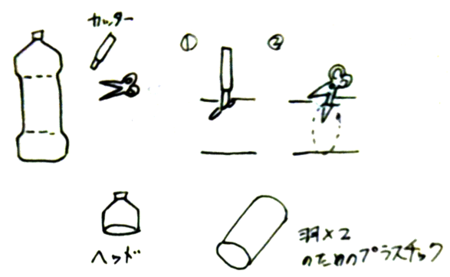 カッター
①
②
ヘッド
羽×2
のためのプラスチック